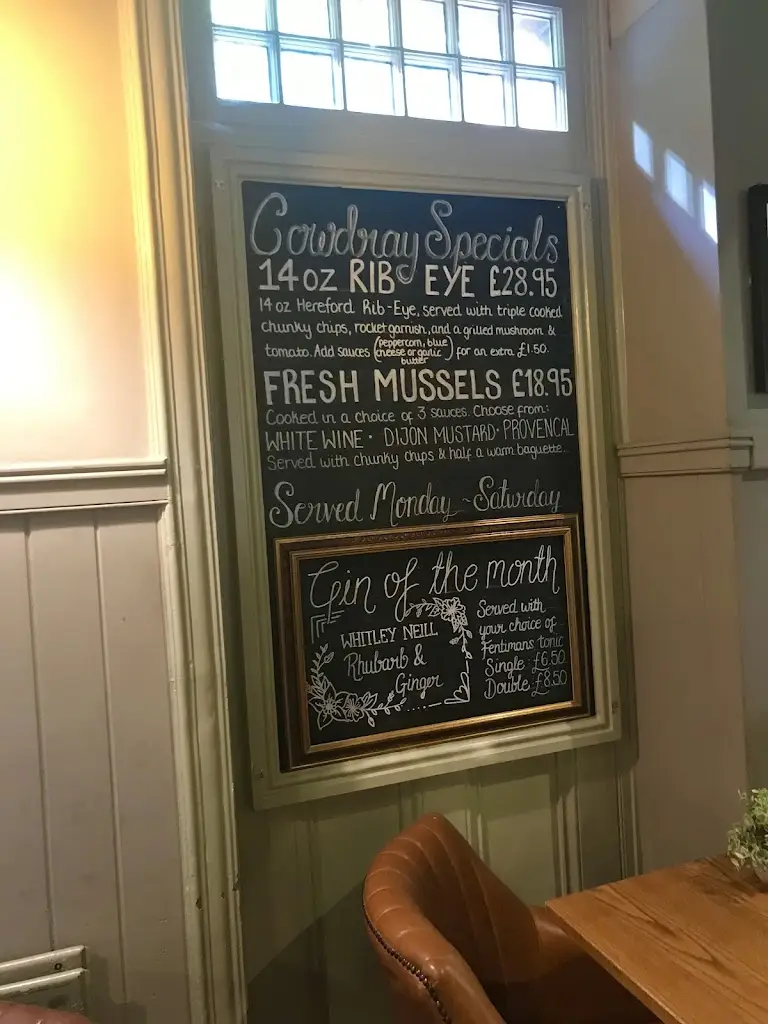 Cowdray Specials
14oz RIB EYE £28.95
14 oz Hereford Rib-Eye, served with triple cooked
chunky chips, rocket garnish, and a grilled mushroom &
tomato. Add sauces (peppercorn, blue cheese or garlic butter) for an extra £1.50.
FRESH MUSSELS £18.95
Cooked in a choice of 3 sauces. Choose from:
WHITE WINE · DIJON MUSTARD · PROVENCAL
Served with chunky chips & half a warm baguette..
Served Monday - Saturday
Gin of the month
WHITLEY NEILL
Rhubarb &
Ginger
Served with
your choice of
Fentimans tonic
Single £6.50
Double £8.50